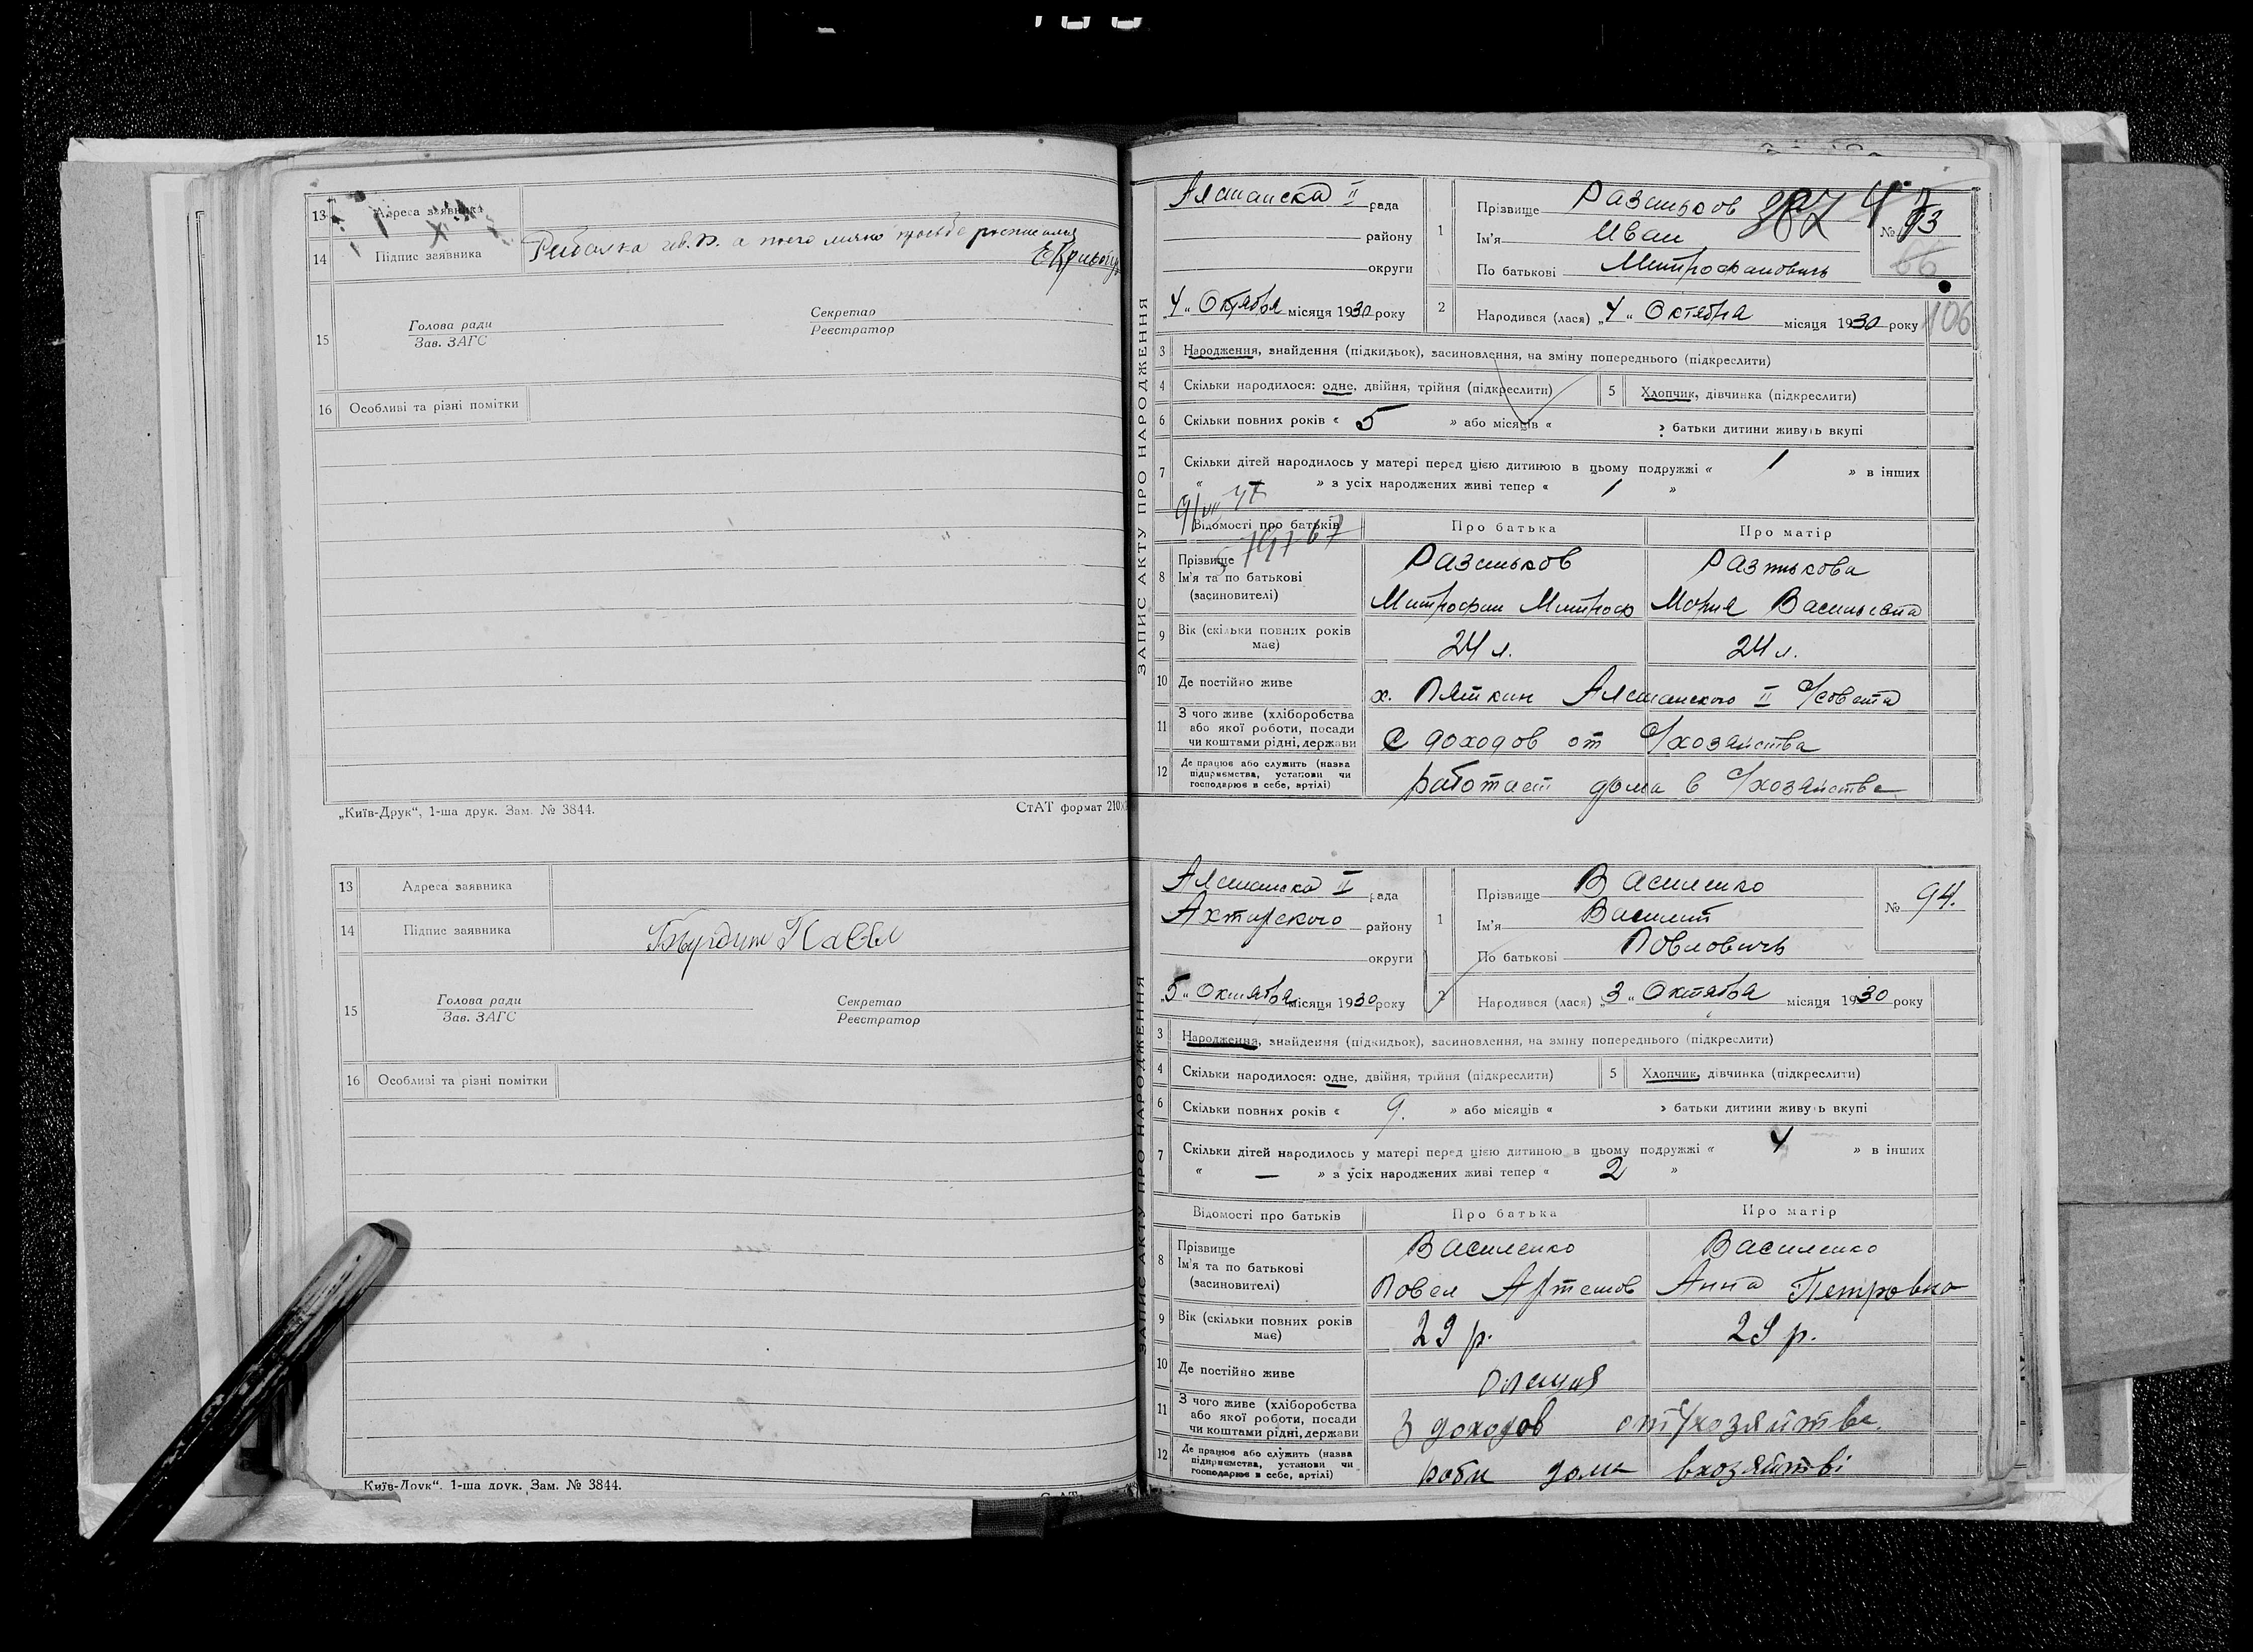 13 Адреса заявника
14 Підпис заявника
15 Голова ради
Зав. ЗАГС
Секретар
Реєстратор
16 Особливі та різні помітки
„Київ-Друк“, 1-ша друк. Зам. № 3844.
СтАТ формат 210
13 Адреса заявника
14 Підпис заявника
15 Голова ради
Зав. ЗАГС
Секретар
Реєстратор
16 Особливі та різні помітки
Київ-Друк“, 1-ша друк. Зам. № 3844.
ЗАПИС АКТУ ПРО НАРОДЖЕННЯ
рада
району
округи
„4“ Октября місяця 1930 року
1 Прізвище
Ім'я Иван
По батькові Митрофанович
№ 93
66
106
2 Народився (лася) „4“ Октября місяця 1930 року
3 Народження, знайдення (підкидьок), засиновлення, на зміну попереднього (підкреслити)
4 Скільки народилося: одне, двійня, трійня (підкреслити)
5 Хлопчик, дівчинка (підкреслити)
6 Скільки повних років « 5 » або місяців « » батьки дитини живуть вкупі
7 Скільки дітей народилось у матері перед цією дитиною в цьому подружжі « 1 » в інших
« » з усіх народжених живі тепер « 1 »
Відомості про батьків
Про батька
Про матір
8 Прізвище
Ім'я та по батькові
(засиновителі)
Митрофан Митроф
Мария Васильевна
9 Вік (скільки повних років має)
24 л.
24 л.
10 Де постійно живе
х. Пяткин II с/совета
11 З чого живе (хліборобства або якої роботи, посади чи коштами рідні, держави
С доходов от с/хозяйства
12 Де працює або служить (назва підприємства, установи чи господарює в себе, артілі)
работает дома в с/хозяйстве
ЗАПИС АКТУ ПРО НАРОДЖЕННЯ
рада
Ахтирского району
округи
„5“ Октября місяця 1930 року
1 Прізвище Василенко
Ім'я Василий
По батькові Повлович
№ 94.
2 Народився (лася) „3“ Октября місяця 1930 року
3 Народження, знайдення (підкидьок), засиновлення, на зміну попереднього (підкреслити)
4 Скільки народилося: одне, двійня, трійня (підкреслити)
5 Хлопчик, дівчинка (підкреслити)
6 Скільки повних років « 9. » або місяців « » батьки дитини живуть вкупі
7 Скільки дітей народилось у матері перед цією дитиною в цьому подружжі « 4 » в інших
« — » з усіх народжених живі тепер « 2 »
Відомості про батьків
Про батька
Про матір
8 Прізвище
Ім'я та по батькові
(засиновителі)
Василенко
Василенко
Повел Артемов
Анна Петровна
9 Вік (скільки повних років має)
29 р.
29 р.
10 Де постійно живе
11 З чого живе (хліборобства або якої роботи, посади чи коштами рідні, держави
З доходов от с/хозяйтва
12 Де працює або служить (назва підприємства, установи чи господарює в себе, артілі)
робе дома вхозяйтві